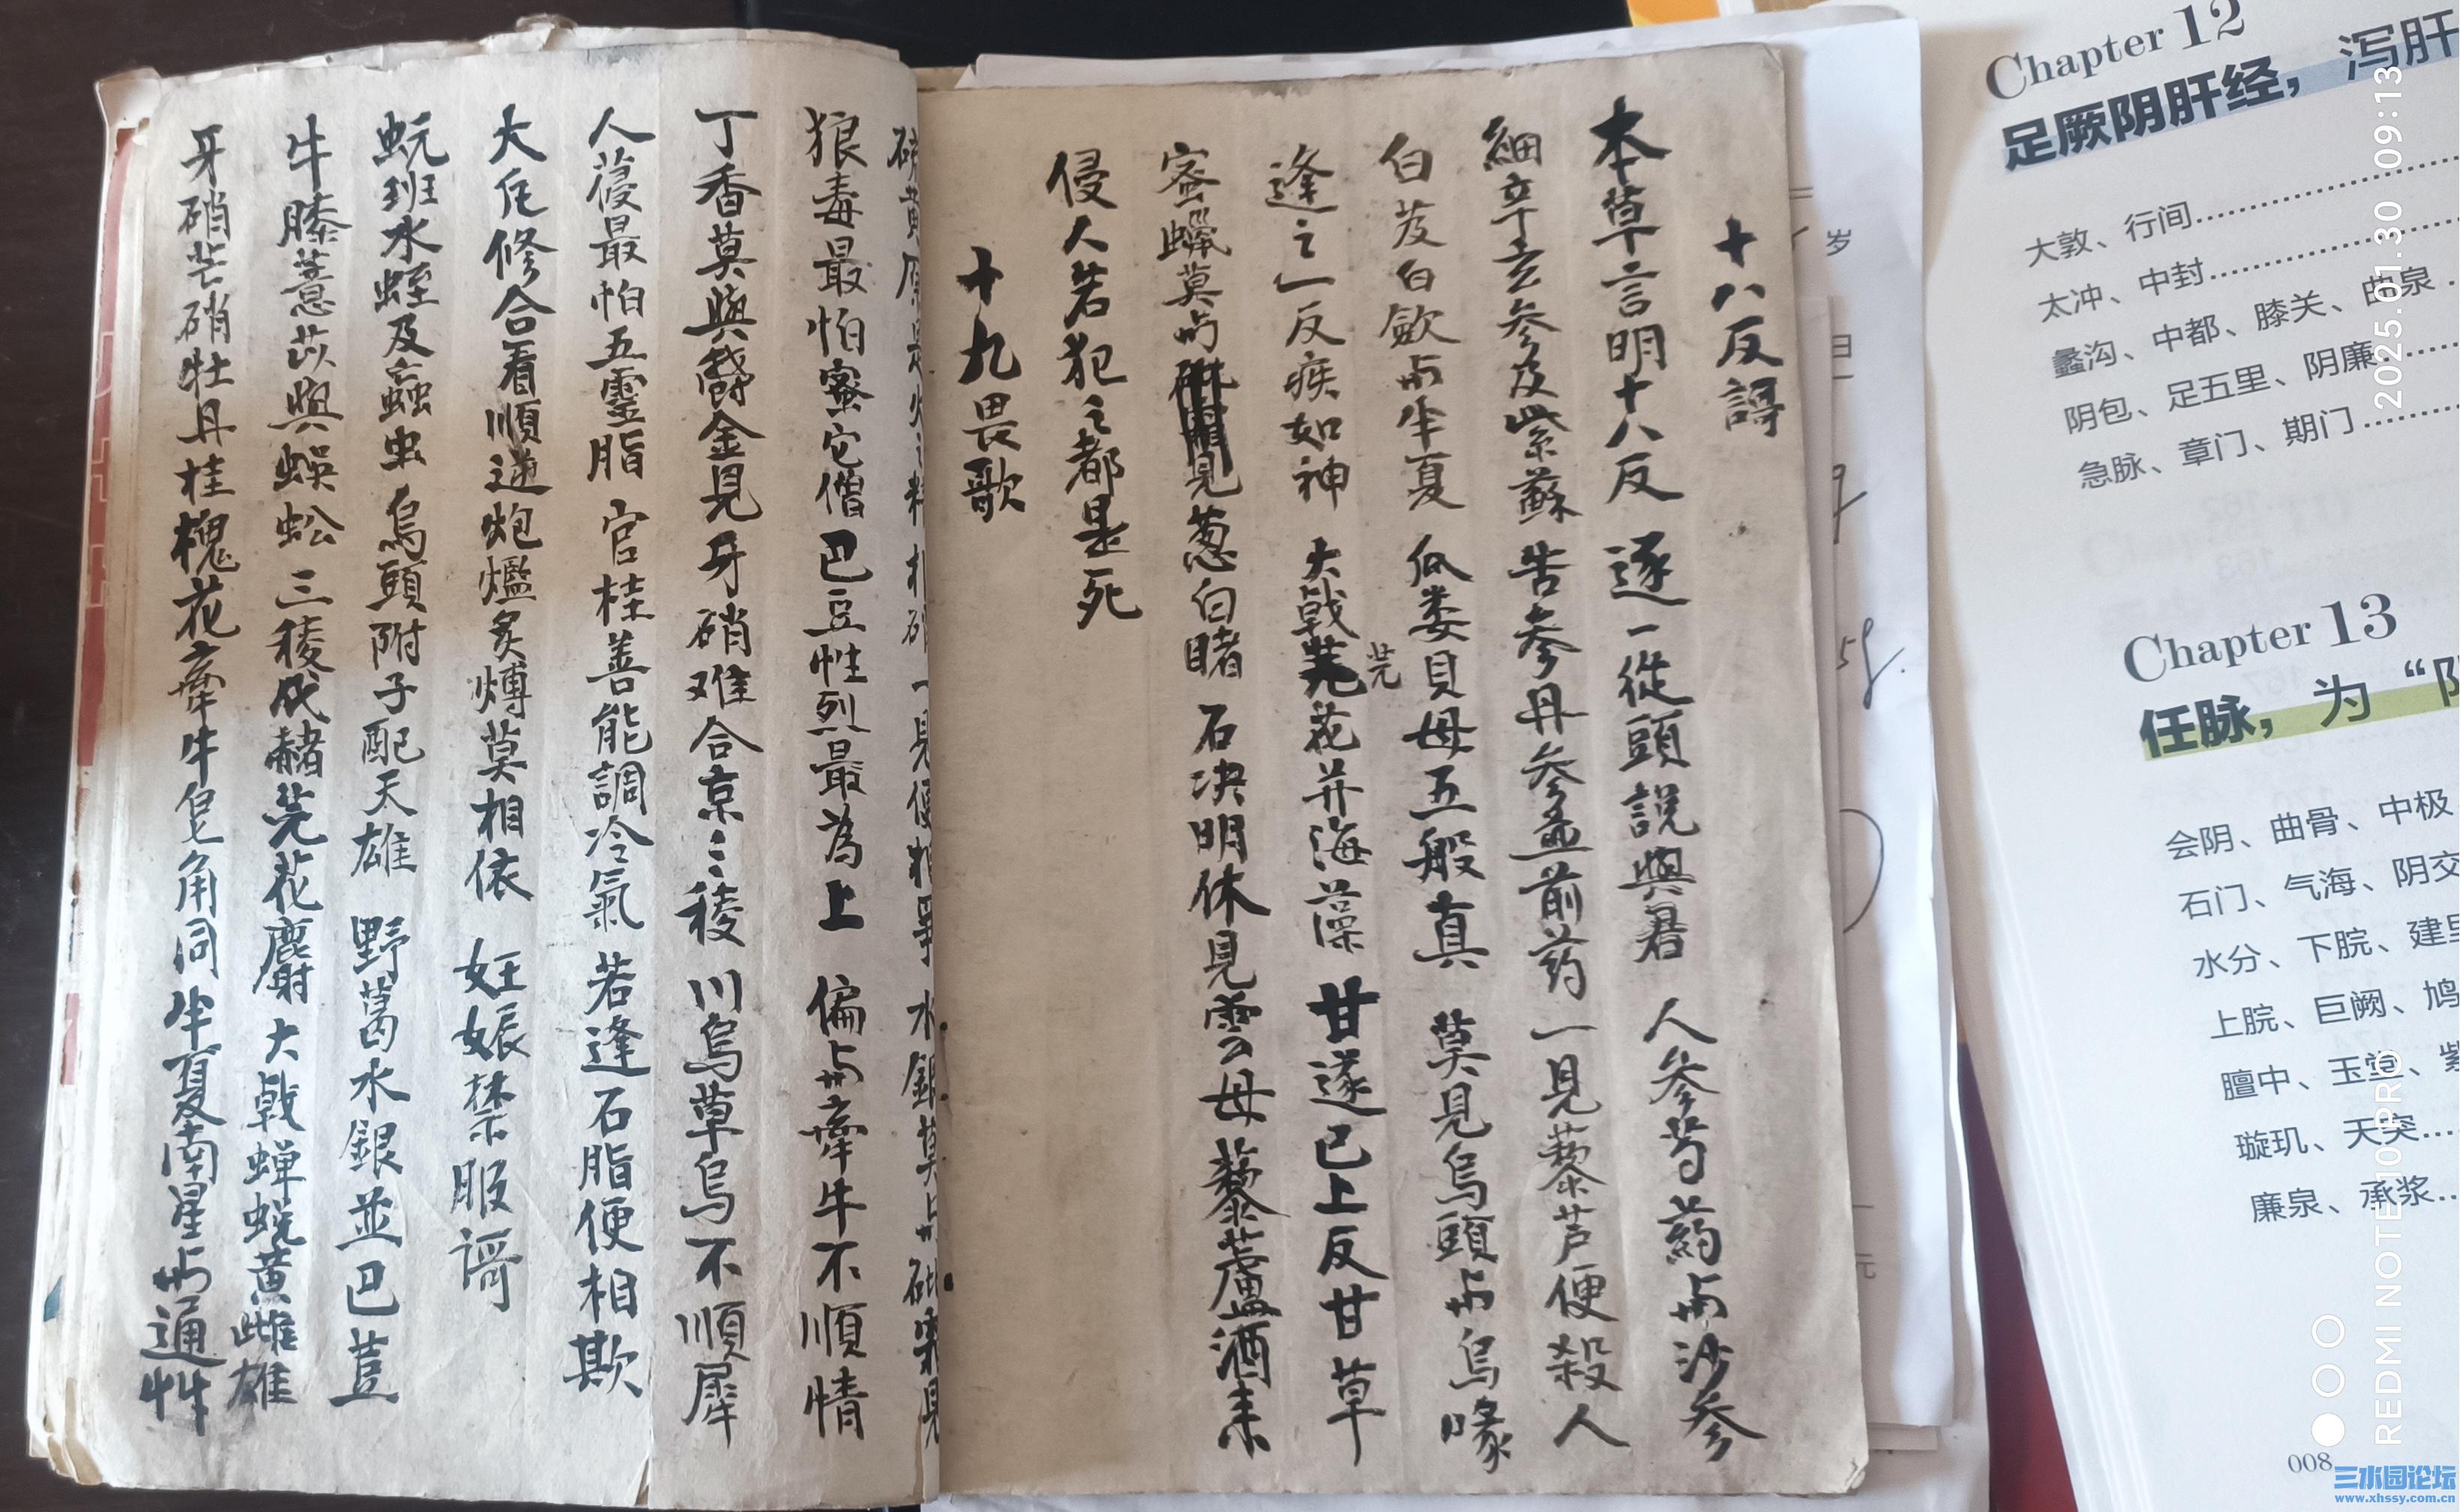 十八反謌
本草言明十八反 逐一從頭說與君 人參芍藥与沙參
細辛玄參及紫蘇 苦參丹參並前药 一見藜芦便殺人
白芨白歛与半夏 瓜蒌貝母五般真 莫見烏頭与烏喙
逢之一反疾如神 大戟芫花并海藻 甘遂已上反甘草
芫
蜜蠟莫与 見葱白睹 石决明休見雲母 藜蘆酒来
侵人若犯之都是死
十九畏歌
硫黃原是火之精 朴硝一見便相爭 水銀莫与砒霜見
狼毒最怕蜜它僧 巴豆性烈最為上 偏与牽牛不順情
丁香莫與欝金見 牙硝难合京三稜 川烏草烏不順犀
人葠最怕五靈脂 官桂善能調冷氣 若逢石脂便相欺
大凡修合看順逆 炮爁炙煿莫相依 妊娠禁服謌
蚖班水蛭及蝱虫 烏頭附子配天雄 野葛水銀並巴荳
牛膝薏苡與蜈蚣 三稜代赭芫花麝 大戟蝉蜕黃雌雄
牙硝芒硝牡丹桂 槐花牽牛皂角同 半夏南星与通草
Chapter 12
足厥阴肝经，泻肝
大敦、行间
太冲、中封
蠡沟、中都、膝关、曲泉
阴包、足五里、阴廉
急脉、章门、期门
Chapter 13
任脉，为“阴
会阴、曲骨、中极
石门、气海、阴交
水分、下脘、建里
上脘、巨阙、鸠
膻中、玉堂、紫
璇玑、天突
廉泉、承浆
008
2025.01.30 09:13
REDMI NOTE 10 PRO
三水园论坛
www.xhssy.com.cn